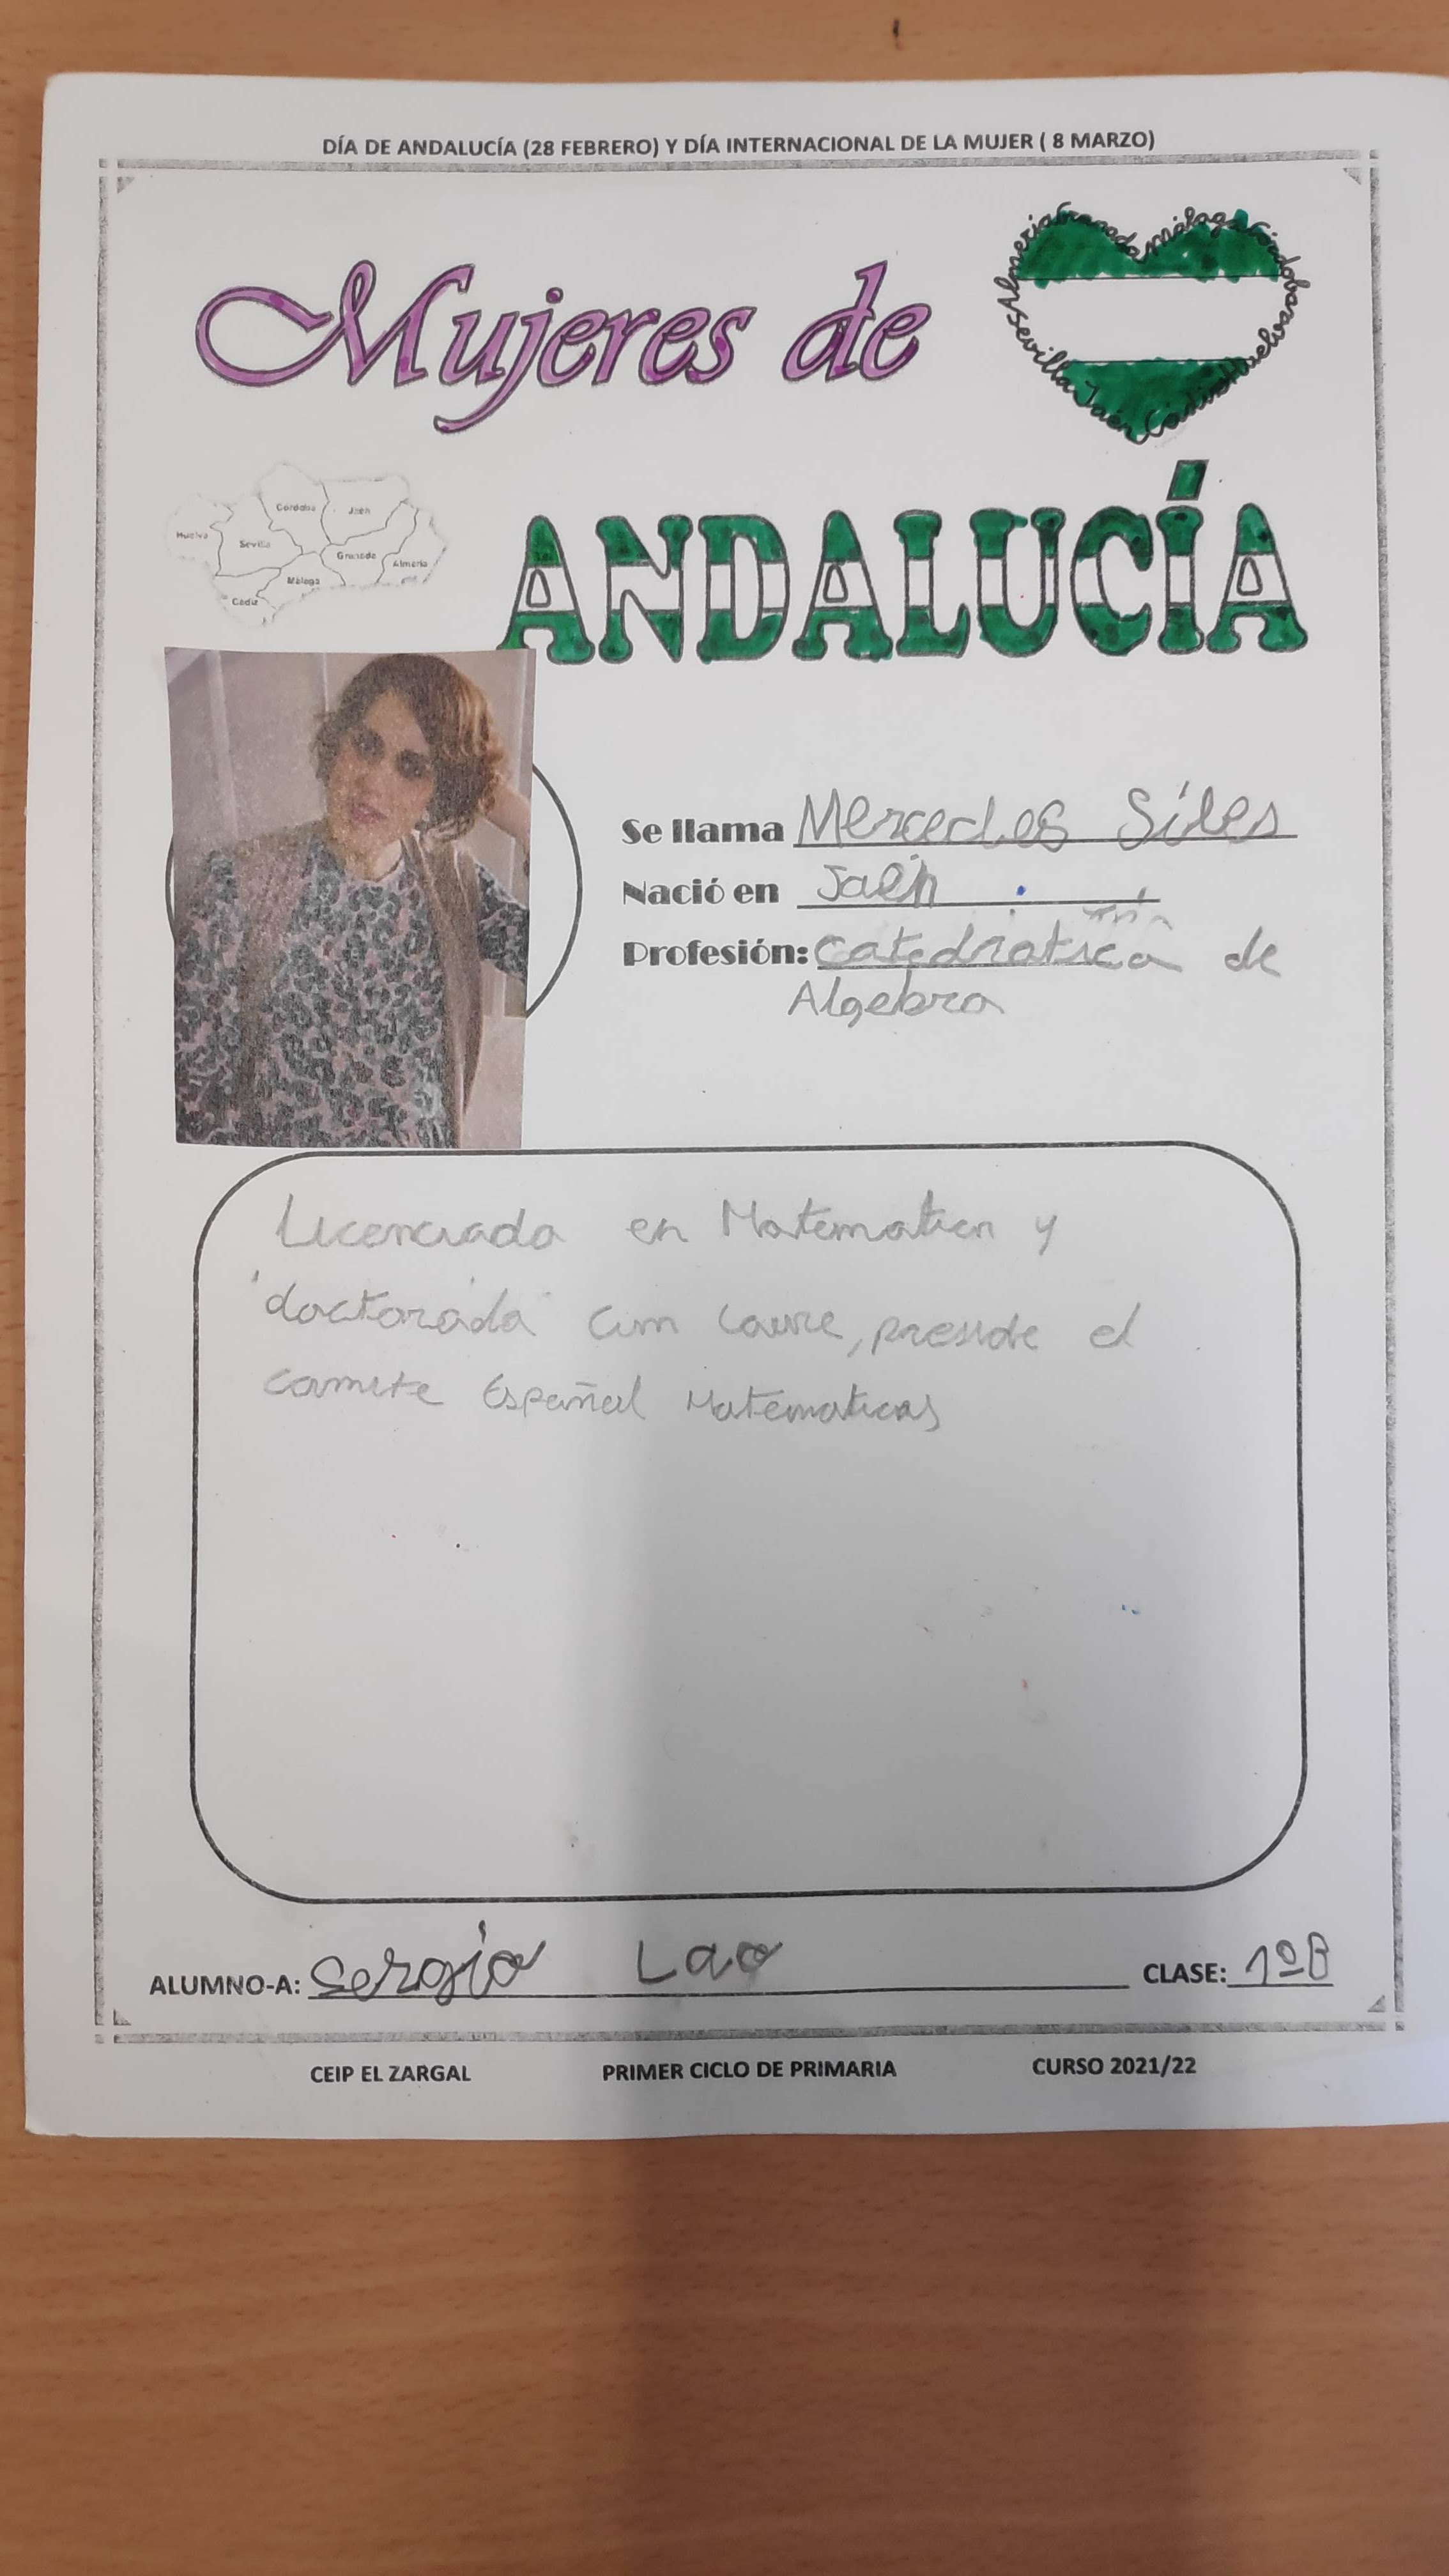 DÍA DE ANDALUCÍA (28 FEBRERO) Y DÍA INTERNACIONAL DE LA MUJER ( 8 MARZO)
Mujeres de
Almería Granada Málaga Córdoba
Sevilla Jaén Cádiz Huelva
ANDALUCÍA
Huelva
Sevilla
Córdoba
Jaén
Granada
Almería
Málaga
Cádiz
Se llama Mercedes Siles
Nació en Jaén
Profesión: Catedratica de
Algebra
Licenciada en Matematica y
doctorada cum laure, preside el
comite Español Matematicas
ALUMNO-A: Sergio Lao CLASE: 1ºB
CEIP EL ZARGAL PRIMER CICLO DE PRIMARIA CURSO 2021/22